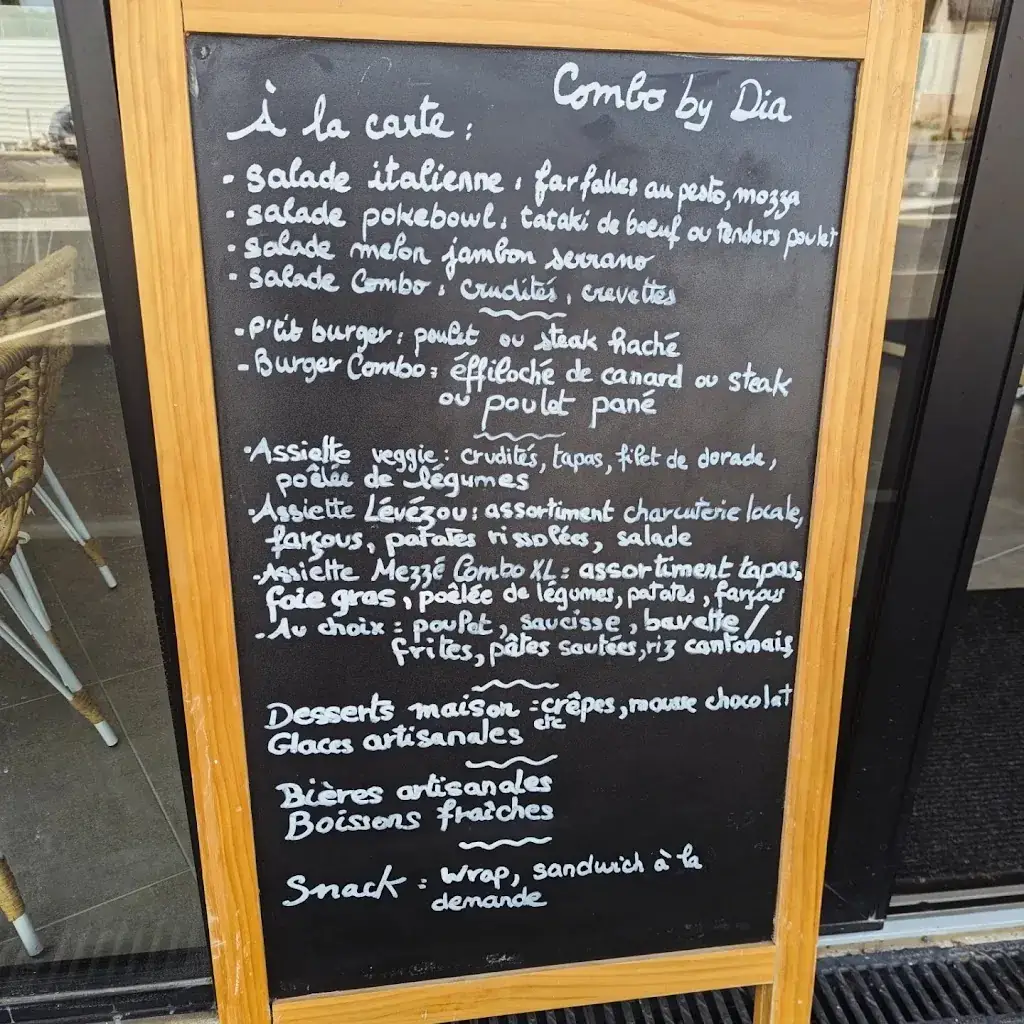 Combo by Dia
À la carte :
- salade italienne : farfalles au pesto, mozza
- salade pokebowl : tataki de boeuf ou tenders poulet
- salade melon jambon serrano
- salade Combo : crudités, crevettes
- P'tit burger : poulet ou steak haché
- Burger Combo : éffiloché de canard ou steak
ou poulet pané
- Assiette veggie : crudités, tapas, filet de dorade,
poêlée de légumes
- Assiette Lévézou : assortiment charcuterie locale,
farçous, patates rissolées, salade
- Assiette Mezzé Combo XL : assortiment tapas,
foie gras, poêlée de légumes, patates, farçous
- Au choix : poulet, saucisse, bavette /
frites, pâtes sautées, riz cantonais
Desserts maison : crêpes, mousse chocolat
etc
Glaces artisanales
Bières artisanales
Boissons fraîches
Snack : wrap, sandwich à la
demande